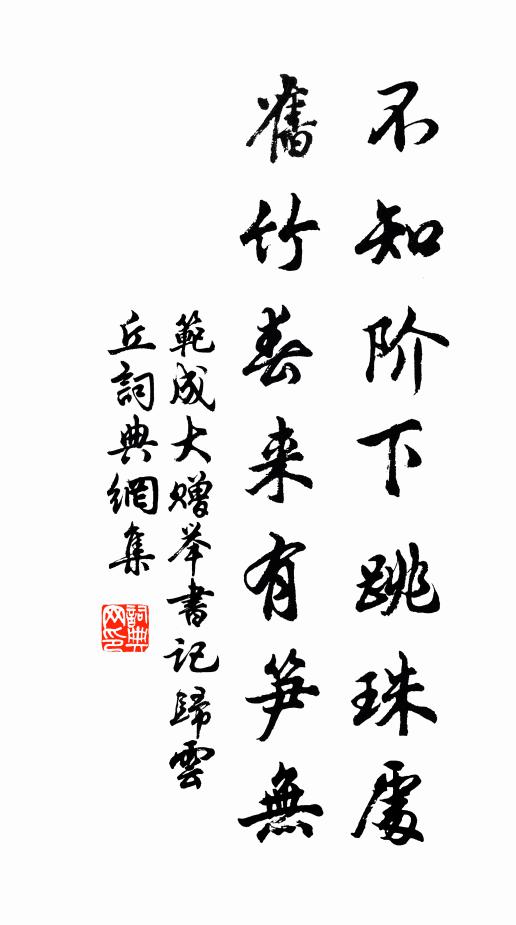 不知阶下跳珠處
舊竹春来有笋無
範成大赠举書記歸雲
丘詞典網集
詞典网印